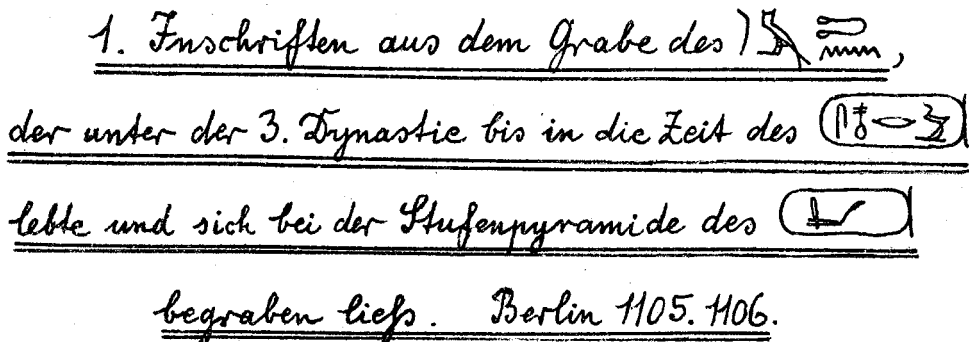 1. Inschriften aus dem Grabe des ,
der unter der 3. Dynastie bis in die Zeit des 𓍹𓋴𓄤𓂋𓅱𓍺
lebte und sich bei der Stufenpyramide des
begraben ließ. Berlin 1105. 1106.